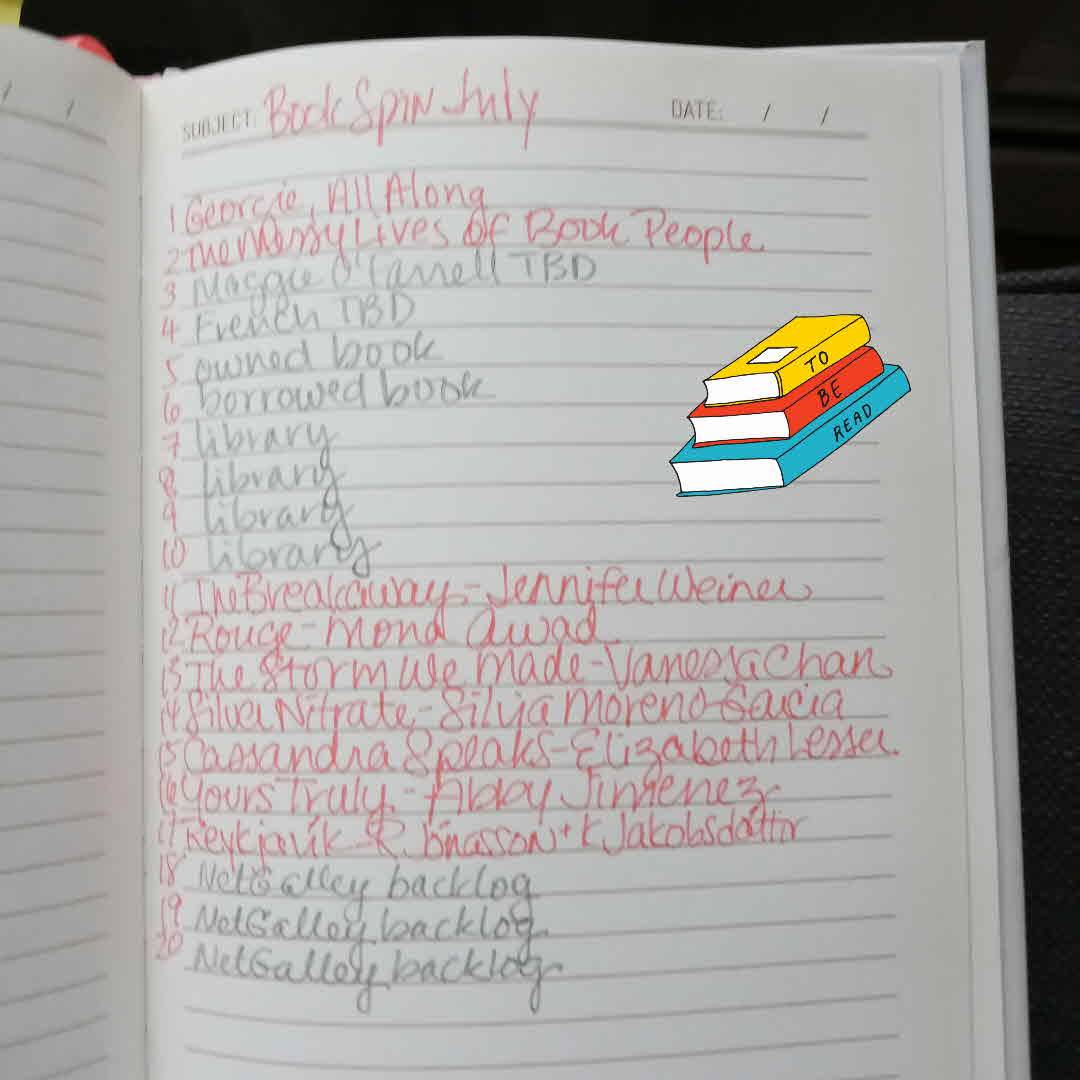 / /
SUBJECT: Book Spin July DATE: / /
1 Georgie, All Along
2 The Messy Lives of Book People
3 Maggie O'Farrell TBD
4 French TBD
5 owned book
6 borrowed book
7 library
8 library
9 library
10 library
11 The Breakaway - Jennifer Weiner
12 Rouge - Mona Awad
13 The Storm We Made - Vanessa Chan
14 Silver Nitrate - Silvia Moreno-Garcia
15 Cassandra Speaks - Elizabeth Lesser
16 Yours Truly - Abby Jimenez
17 Reykjavík - R. Jónasson + K Jakobsdóttir
18 NetGalley backlog
19 NetGalley backlog
20 NetGalley backlog
TO
BE
READ